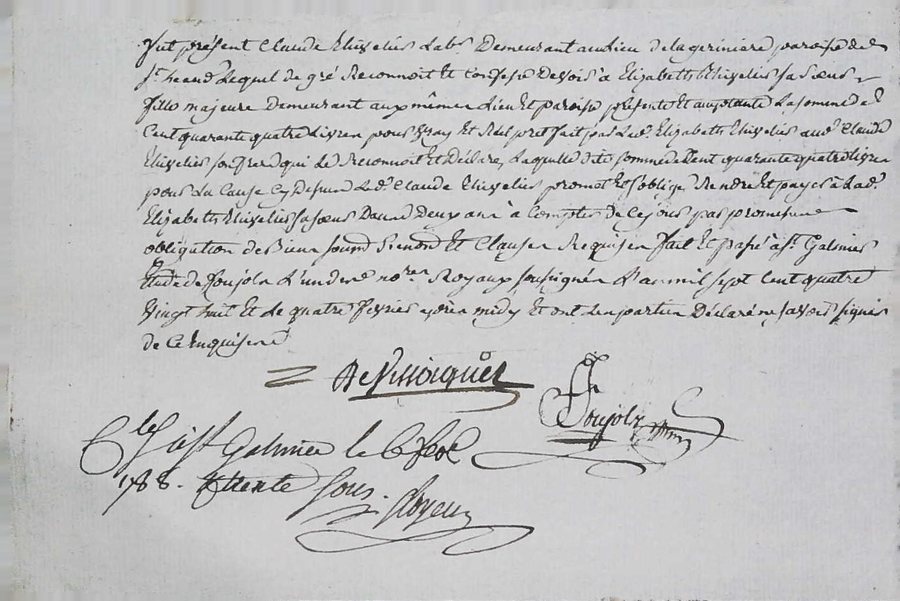 fut présent Claude Thivelier labr. Demeurant au lieu de la geriniere paroisse de
St. heand Lequel de gré Reconnoit Et Confesse Devoir à Elizabeth Thivelier sa soeur
fille majeure Demeurant aux même Lieu et paroisse présente Et acceptante La somme de
Cent quarante quatre Livres pour vray Et Réel pret fait par Lad. Elizabeth Thivelier aud. Claude
Thivelier son frere qui Le Reconnoit Et Déclare, Laquelle dite somme de Cent quarante quatre livres
pour La Cause Cy Dessus Led. Claude Thivelier promet Et s'oblige Rendre Et payer à Lad.
Elizabeth Thivelier sa soeur Dans Deux ans à Compter de Ce jour par promesse
obligation de Biens soumissions Renonciations Et Clauses Requises fait Et passé à St. Galmier
Etude de Poujols L'un des nores. Royaux soussignés L'an mil sept Cent quatre
vingt huit Et Le quatre fevrier après midy Et ont Les parties Déclaré ne savoir signer
de Ce Enquises
Poujols
Clé à St Galmier le 6 fev
1788. trente sous.